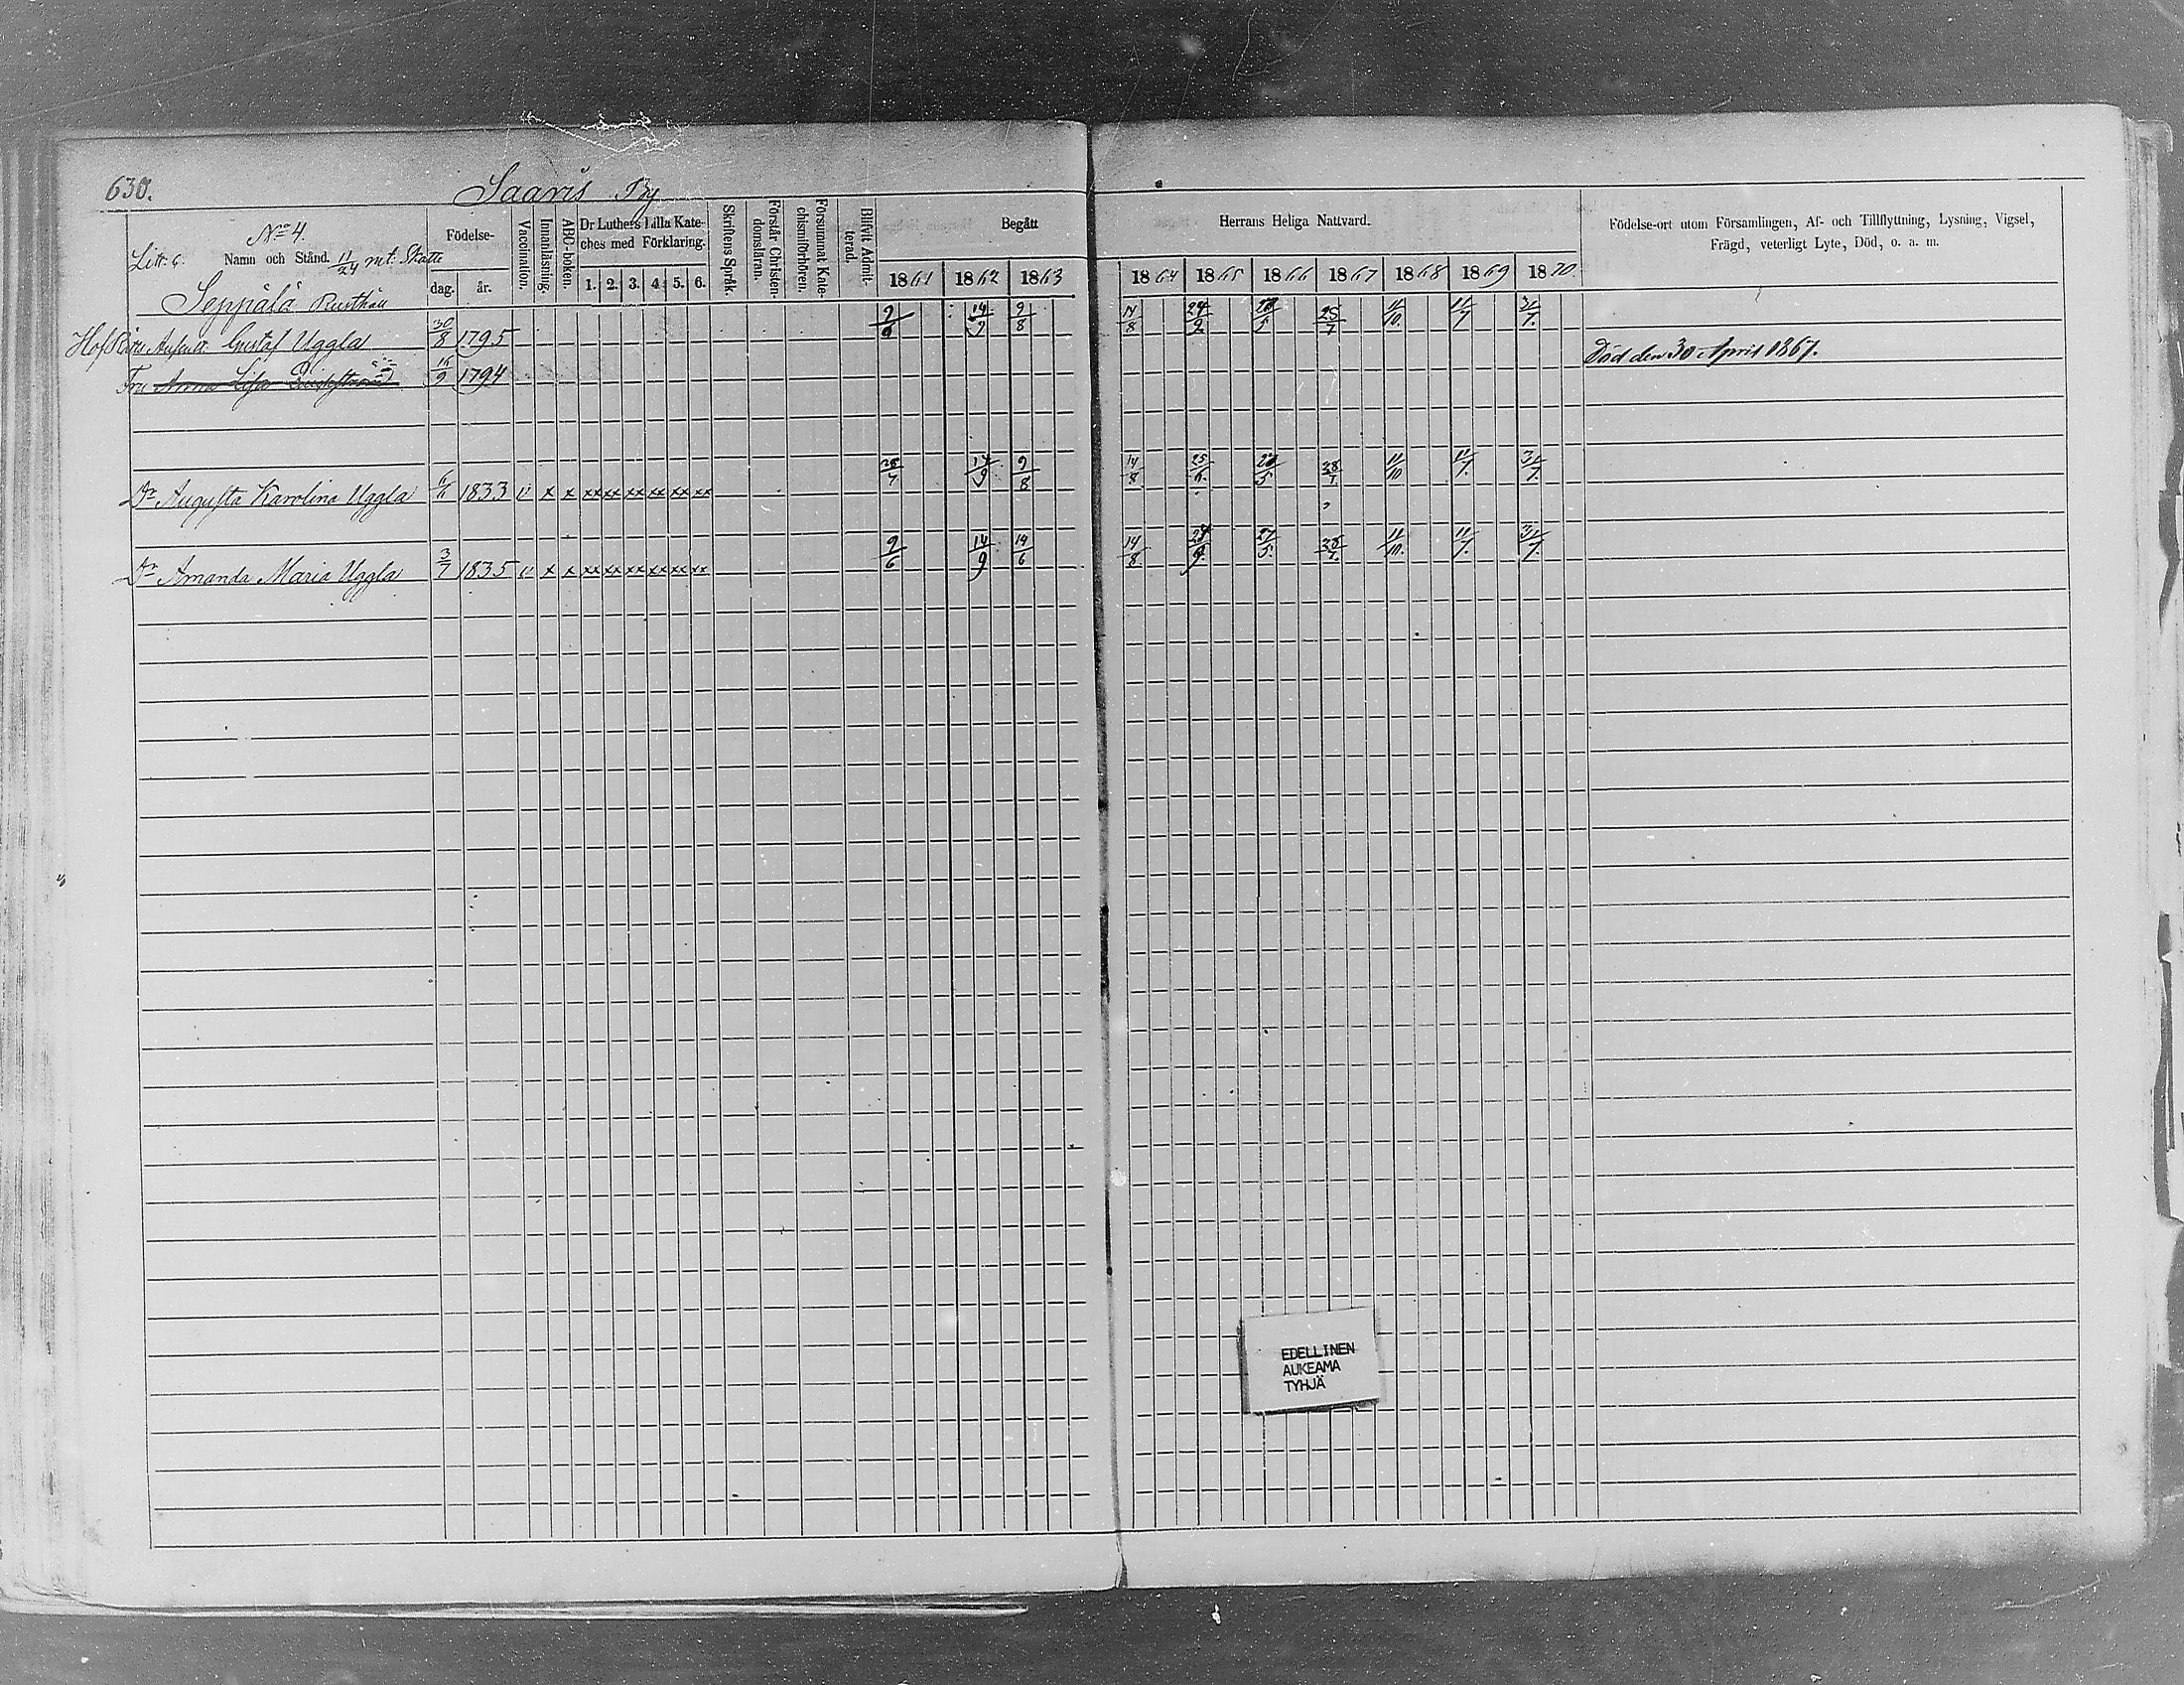 630.
Saaris By
No 4.
Litt. G. Namn och Stånd. 11/24 mt. Skatte
Födelse-
dag. år.
Vaccination.
Innanläsning.
ABC-boken.
Dr Luthers Lilla Kate-
ches med Förklaring.
1. 2. 3. 4. 5. 6.
Skriftens Språk.
Förstår Christen-
domsläran.
Försummat Kate-
chismiförhören.
Blifvit Admit-
terad.
Begått
1861 1862 1863
Herrans Heliga Nattvard.
1864 1865 1866 1867 1868 1869 1870
Födelse-ort utom Församlingen, Af- och Tillflyttning, Lysning, Vigsel,
Frägd, veterligt Lyte, Död, o. a. m.
Seppälä Rusthåll
Gustaf Uggla 30/8 1795 14/9 9/8 14/8 11/10. 11/7 31/7.
Fru Anna Lisa 16/9 1794 Död den 30 April 1867.
Dr Augusta Karolina Uggla 1833 v x x xx xx xx xx xx xx 14/9 9/8 14/8 11/10 11/7. 31/7.
Dr Amanda Maria Uggla 3/7 1835 v x x xx xx xx xx xx xx 9/6 14/9 14/6 14/8 27/5. 11/10. 11/7. 31/7.
EDELLINEN
AUKEAMA
TYHJÄ